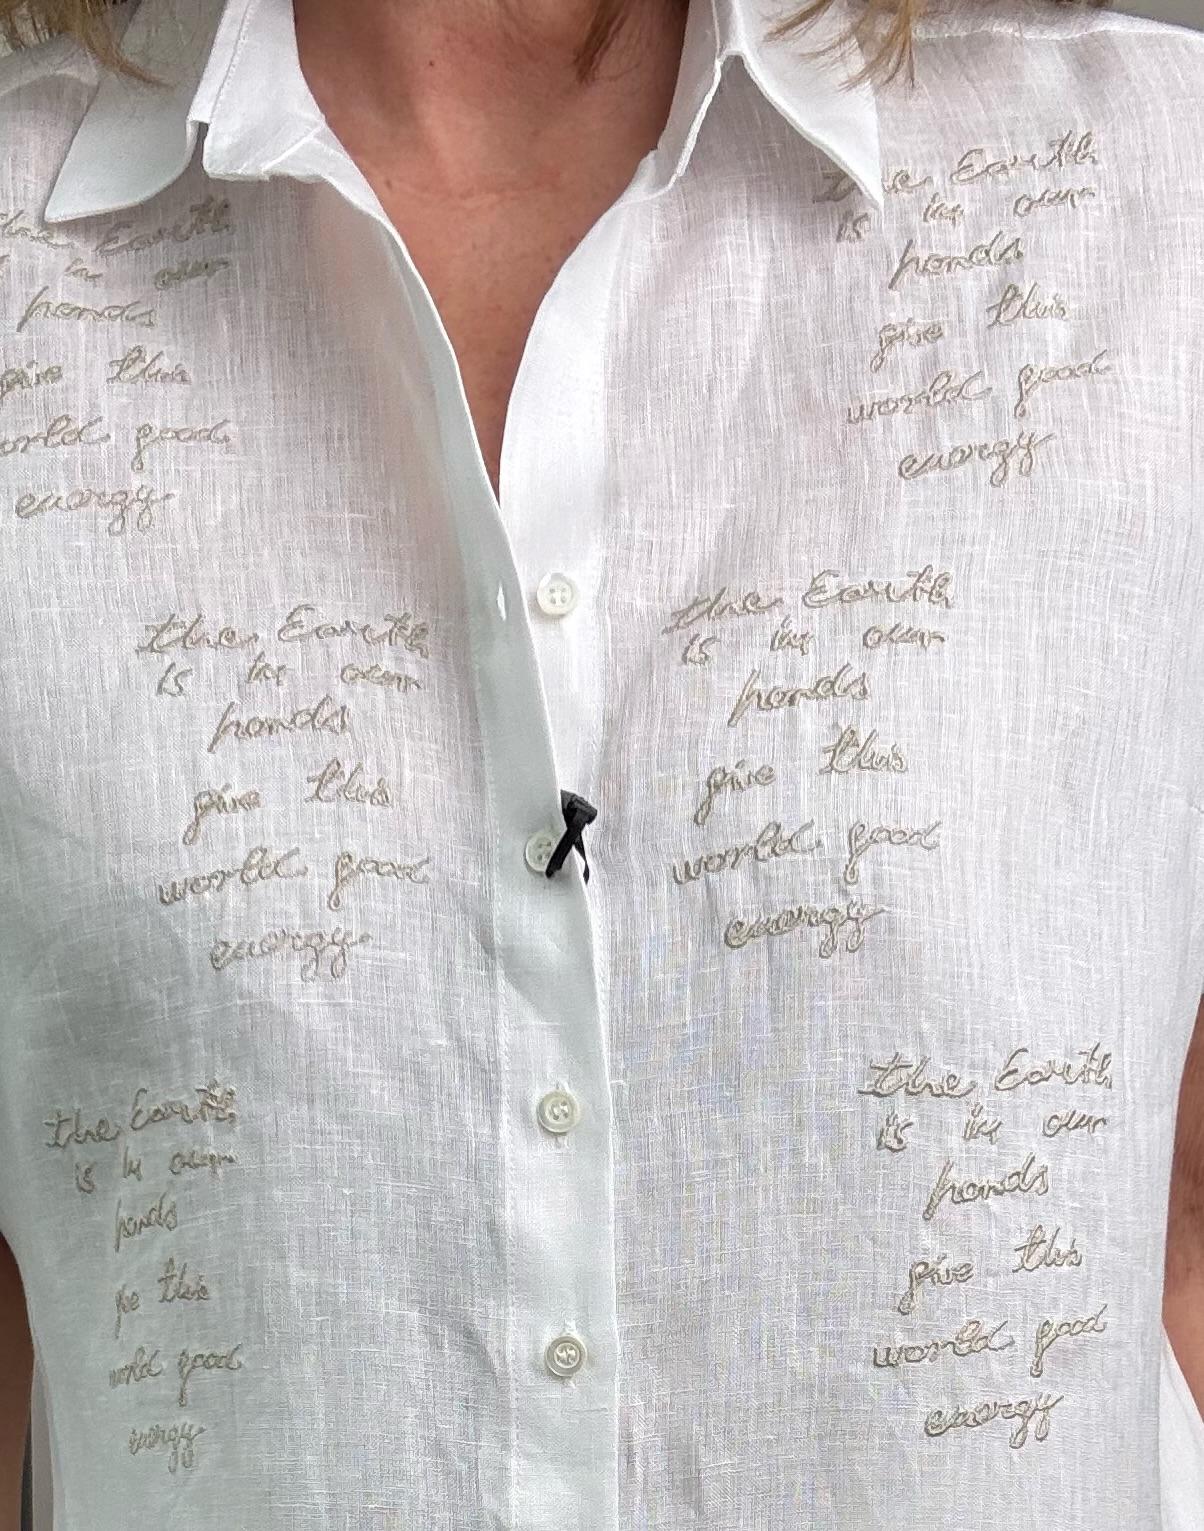 the Earth
in our
hands
give this
world good
energy
the Earth
is in our
hands
give this
world good
energy
the Earth
is in our
hands
give this
world good
energy
the Earth
is in our
hands
give this
world good
energy
the Earth
is in our
hands
this
world good
energy
the Earth
is in our
hands
give this
world good
energy